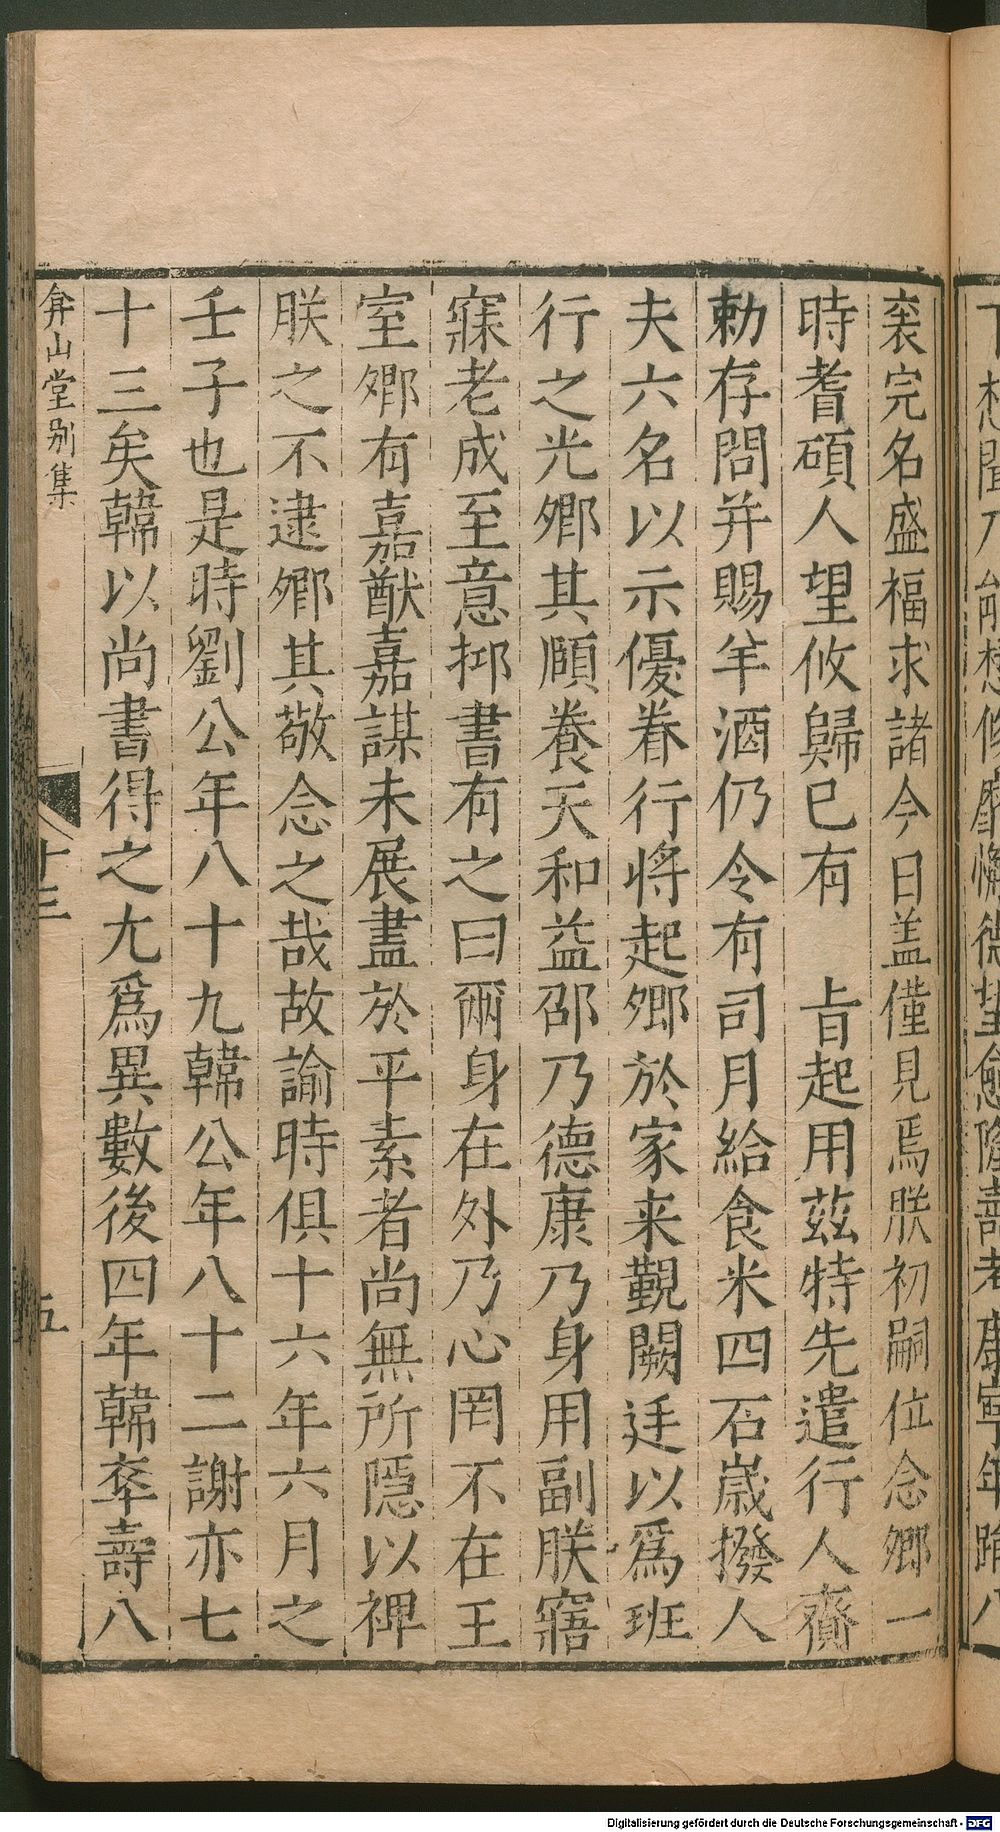 袠完名盛福求諸今日盖僅見焉朕初嗣位念卿一
時耆碩人望攸歸已有　上旨起用兹特先遣行人齎
勅存問并賜羊酒仍令有司月給食米四石嵗撥人
夫六名以示優眷行將起卿於家来觀闕廷以爲班
行之光卿其頤養天和益邵乃德康乃身用副朕寤
寐老成至意抑書有之曰爾身在外乃心罔不在王
室卿有嘉猷嘉謀未展盡於平素者尚無所隱以裨
朕之不逮卿其敬念之哉故諭時俱十六年六月之
壬子也是時劉公年八十九韓公年八十二謝亦七
十三矣韓以尚書得之尤爲異數後四年韓卒壽八
弇山堂别集
十三
五
Digitalisierung gefördert durch die Deutsche Forschungsgemeinschaft - DFG